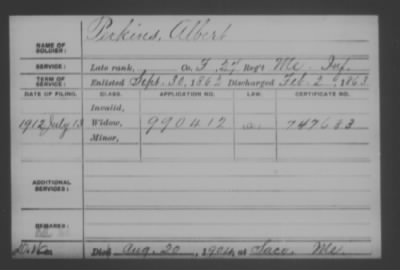 Perkins, Albert
NAME OF
SOLDIER:
SERVICE: Late rank, Co. F, 27 Reg't Me. Inf.
TERM OF
SERVICE: Enlisted Sept. 30, 1862 Discharged Feb. 2, 1863
DATE OF FILING. CLASS. APPLICATION NO. LAW. CERTIFICATE NO.
Invalid,
1912 July 13 Widow, 990412 747683
Minor,
ADDITIONAL
SERVICES:
REMARKS:
Died Aug. 20, 1904, at Saco, Me.